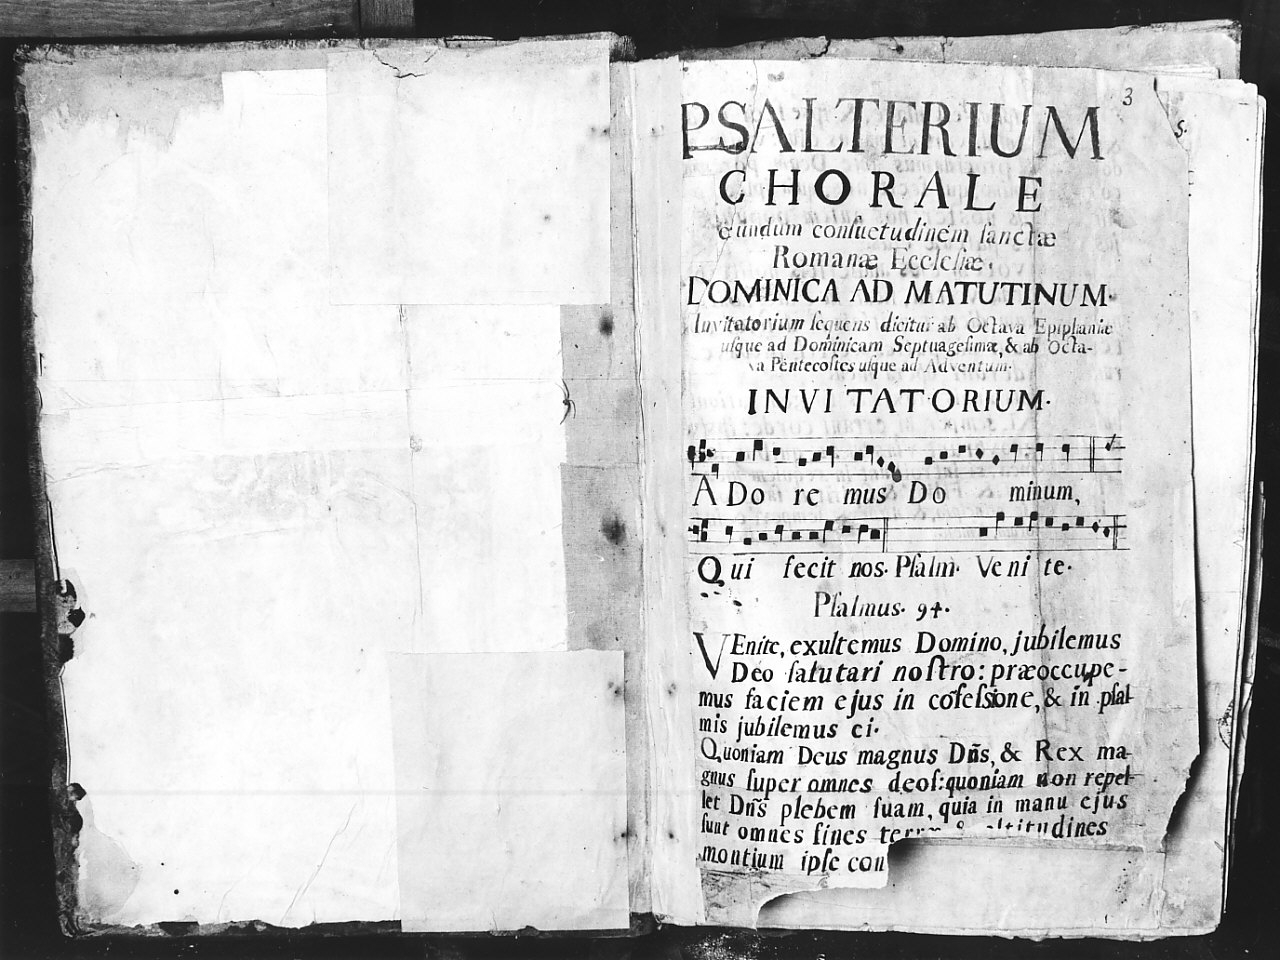 3
S.
PSALTERIUM
CHORALE
cundum conſuetudinem ſanctæ
Romanæ Eccleſiæ.
DOMINICA AD MATUTINUM.
Invitatorium ſequens dicitur ab Octava Epiphaniæ
uſque ad Dominicam Septuageſimæ, & ab Octa-
va Pentecoſtes uſque ad Adventum.
INVITATORIUM.
ADo re mus Do minum,
Qui fecit nos. Pſalm. Veni te.
Pſalmus. 94.
VEnite, exultemus Domino, jubilemus
Deo ſalutari noſtro: præoccupe-
mus faciem ejus in cõfeſsione, & in pſal-
mis jubilemus ei.
Quoniam Deus magnus Dñs, & Rex ma-
gnus ſuper omnes deoſ: quoniam non repel-
let Dñs plebem ſuam, quia in manu ejus
ſunt omnes fines terræ & altitudines
montium ipſe con